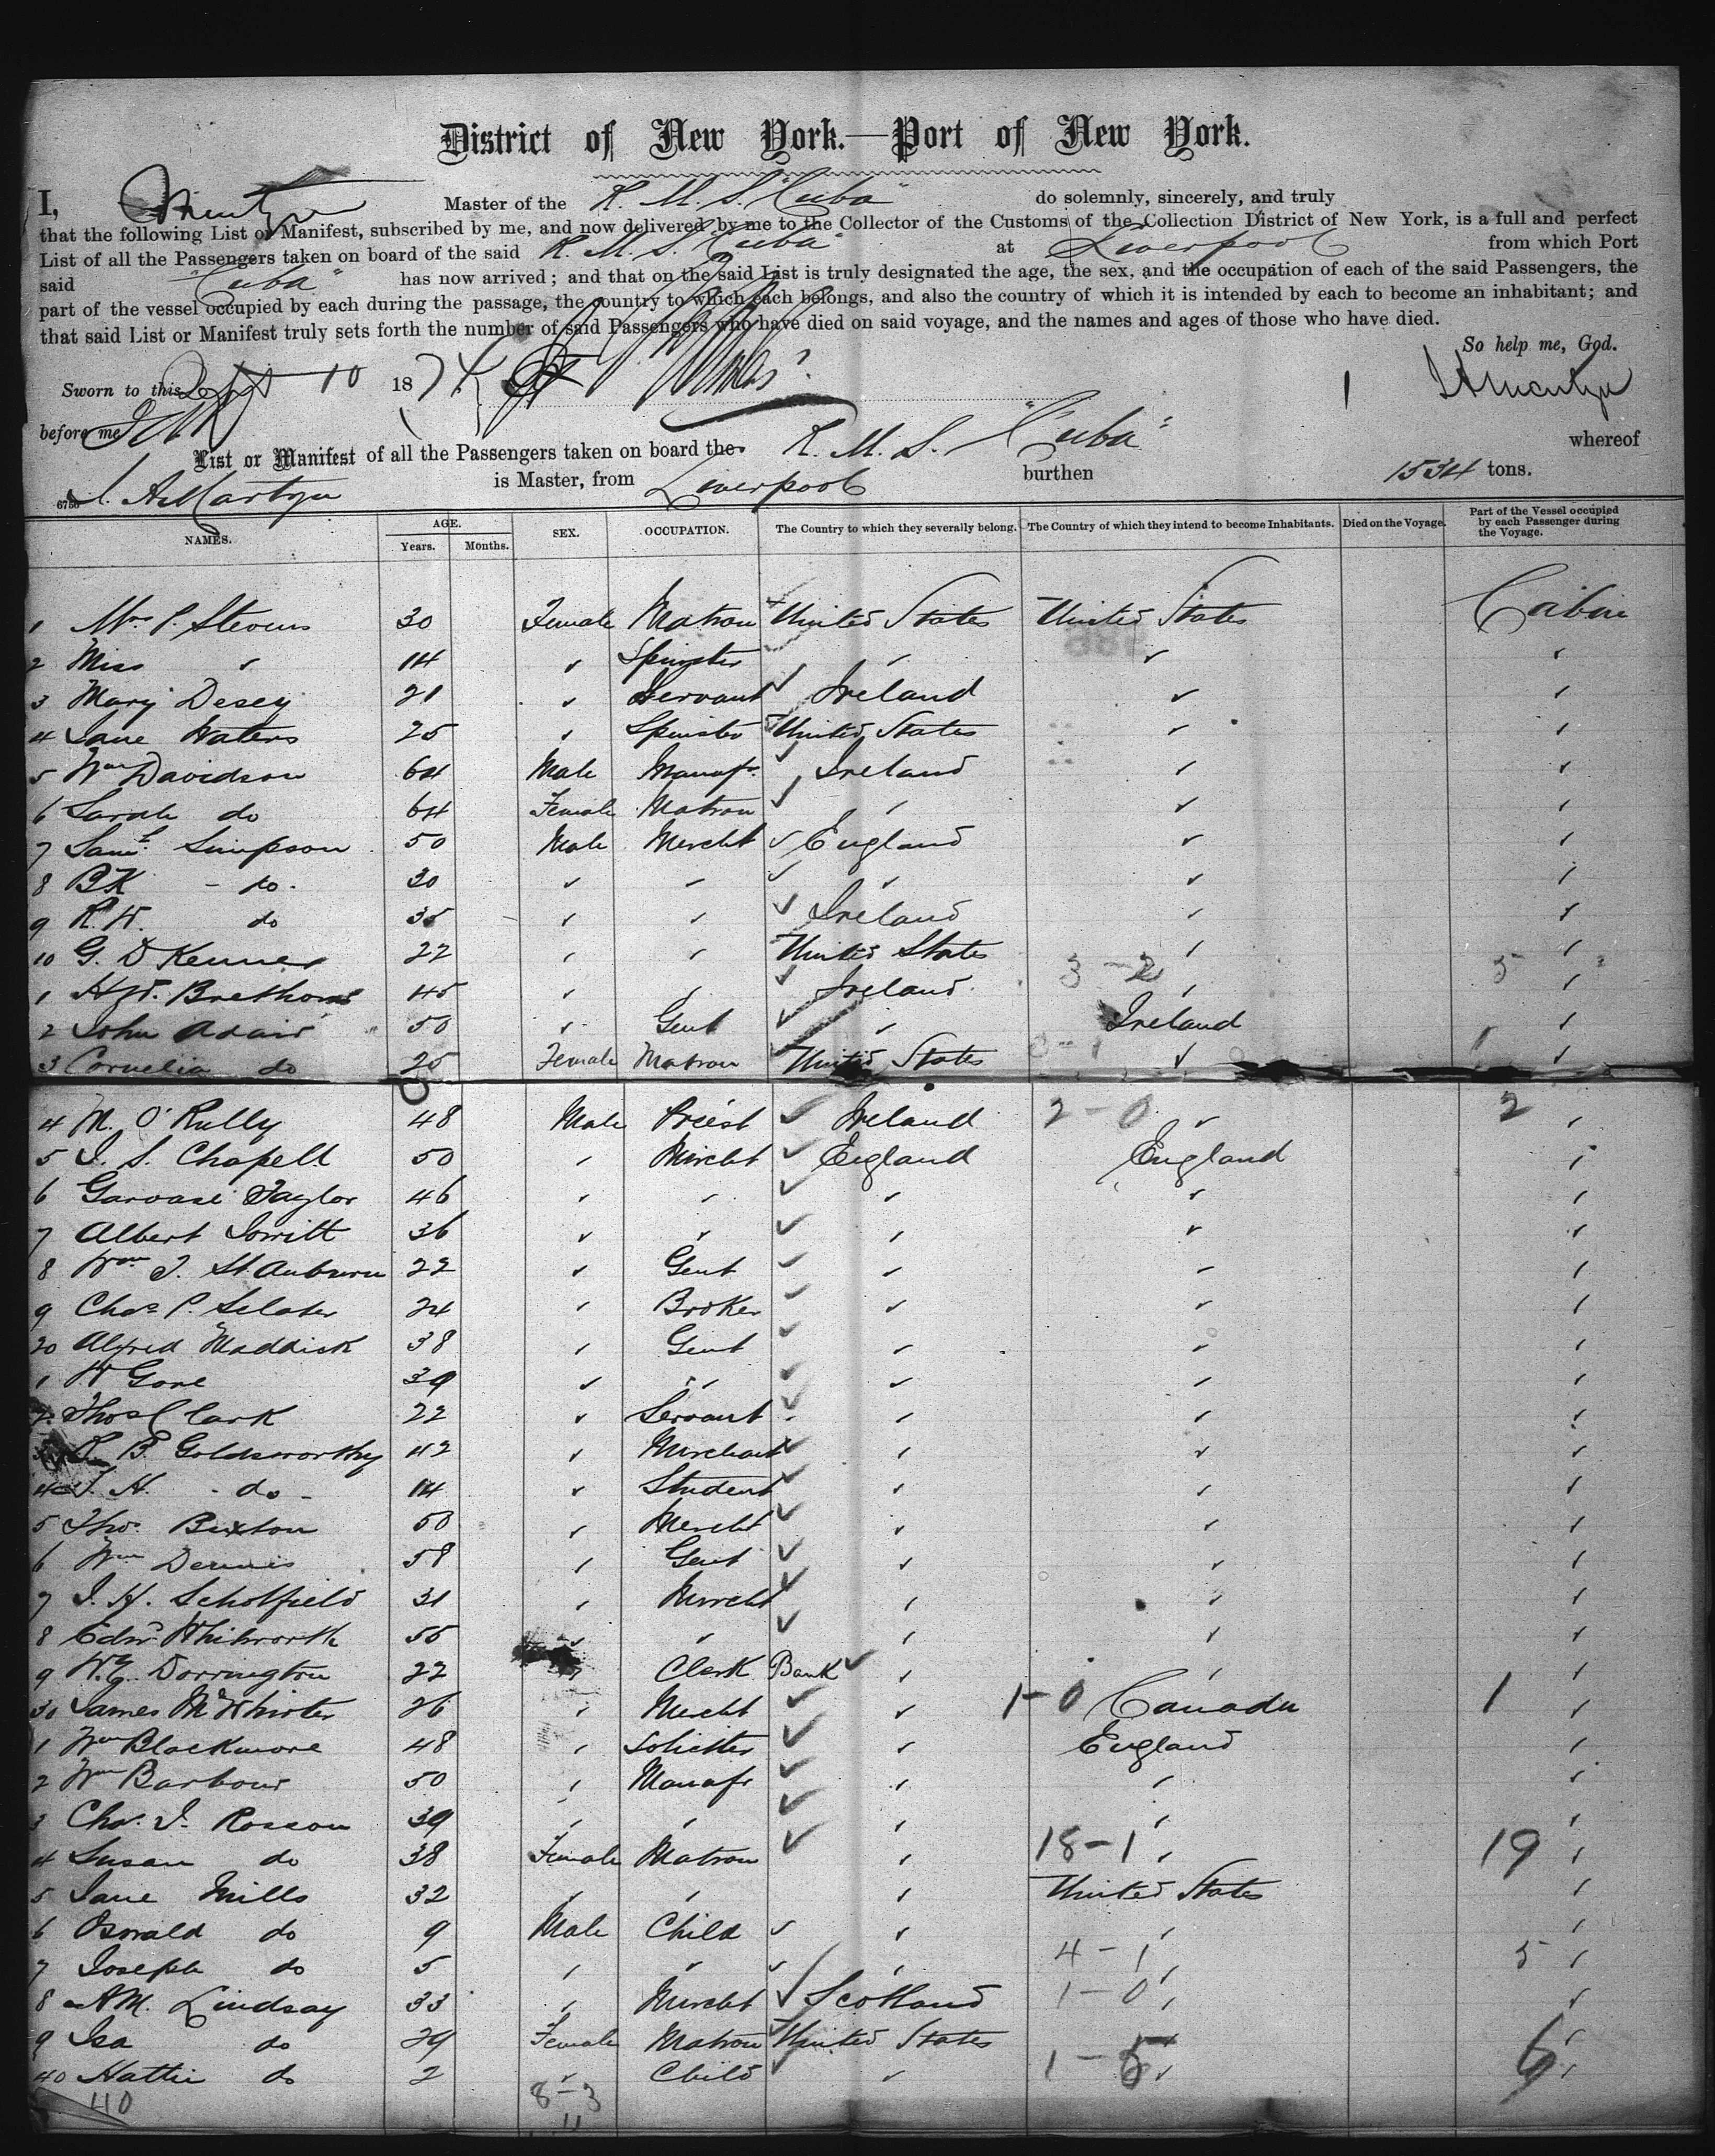 District of New York.—Port of New York.
I, Master of the R. M. S. "Cuba" do solemnly, sincerely, and truly
that the following List or Manifest, subscribed by me, and now delivered by me to the Collector of the Customs of the Collection District of New York, is a full and perfect
List of all the Passengers taken on board of the said R. M. S. "Cuba" at Liverpool from which Port
said "Cuba" has now arrived; and that on the said List is truly designated the age, the sex, and the occupation of each of the said Passengers, the
part of the vessel occupied by each during the passage, the country to which each belongs, and also the country of which it is intended by each to become an inhabitant; and
that said List or Manifest truly sets forth the number of said Passengers who have died on said voyage, and the names and ages of those who have died.
So help me, God.
Sworn to this 10 187
before me
List or Manifest of all the Passengers taken on board the R. M. S. "Cuba" whereof
is Master, from Liverpool burthen 1534 tons.
NAMES. AGE. Years. Months. SEX. OCCUPATION. The Country to which they severally belong. The Country of which they intend to become Inhabitants. Died on the Voyage. Part of the Vessel occupied by each Passenger during the Voyage.
1 Mrs P. Stevens 30 Female Matron United States United States Cabin
2 Miss " 14 " Spinster " " "
3 Mary Desey 21 " Servant Ireland " "
4 Jane Waters 25 " Spinster United States " "
5 Wm Davidson 64 Male Manafr Ireland " "
6 Sarah do 64 Female Matron " " "
7 Saml Simpson 50 Male Mercht England " "
8 BK - do - 30 " " " " "
9 R. W. do 35 " " Ireland " "
10 G. D Kenner 22 " " United States " "
1 45 " " Ireland " "
2 John Adair 50 " Gent " Ireland "
3 Cornelia do 25 Female Matron United States " "
4 M. O'Rully 48 Male Priest Ireland 2-0 " 2 "
5 J. S. Chapell 50 " Mercht England England "
6 Garvase Taylor 46 " " " " "
7 Albert Jowitt 36 " " " " "
8 Wm J. St Auburn 22 " Gent " " "
9 Chas P. Sclater 24 " Broker " " "
20 Alfred Maddick 38 " Gent " " "
1 W Gore 39 " " " " "
2 Thos Clark 22 " Servant " " "
3 R. B. Goldsworthy 42 " Merchant " " "
4 J. H. - do - 14 " Student " " "
5 Thos Buxton 50 " Mercht " " "
6 Wm Dennis 58 " Gent " " "
7 J. H. Scholfield 31 " Mercht " " "
8 Edwd Whitworth 55 " " " " "
9 Dorrington 22 " Clerk Bank " " "
30 James McWhirter 26 " Mercht " 1-0 Canada 1 "
1 Wm Blackmore 48 " Solicitor " England "
2 Wm Barbour 50 " Manafr " " "
3 Chas J. Rosson 39 " " " " "
4 Susan do 38 Female Matron " 18-1 " 19 "
5 Jane Mills 32 " " " United States "
6 Oswald do 9 Male Child " " "
7 Joseph do 5 " " " 4-1 " 5 "
8 A M. Lindsay 33 " Mercht Scotland 1-0 " "
9 Isa do 29 Female Matron United States " "
40 Hattie do 2 " Child " " 6 "
40 8-3
11